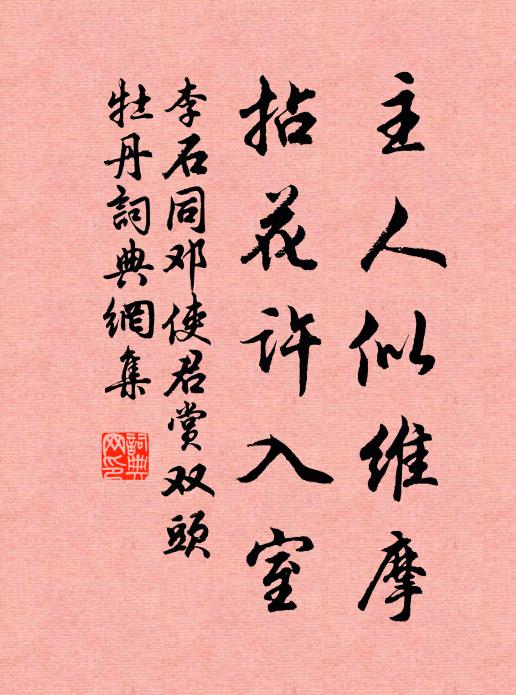 主人似维摩
拈花许入室
李石同邓使君赏双頭
牡丹詞典網集
詞典網印